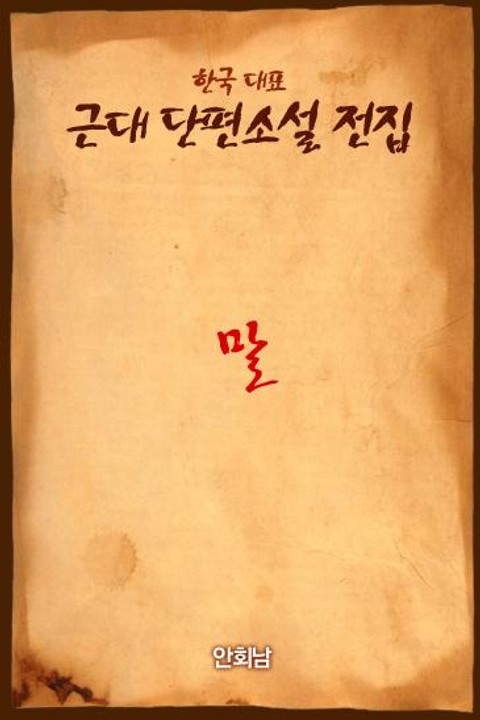 한국 대표
근대 단편소설 전집
말
안회남